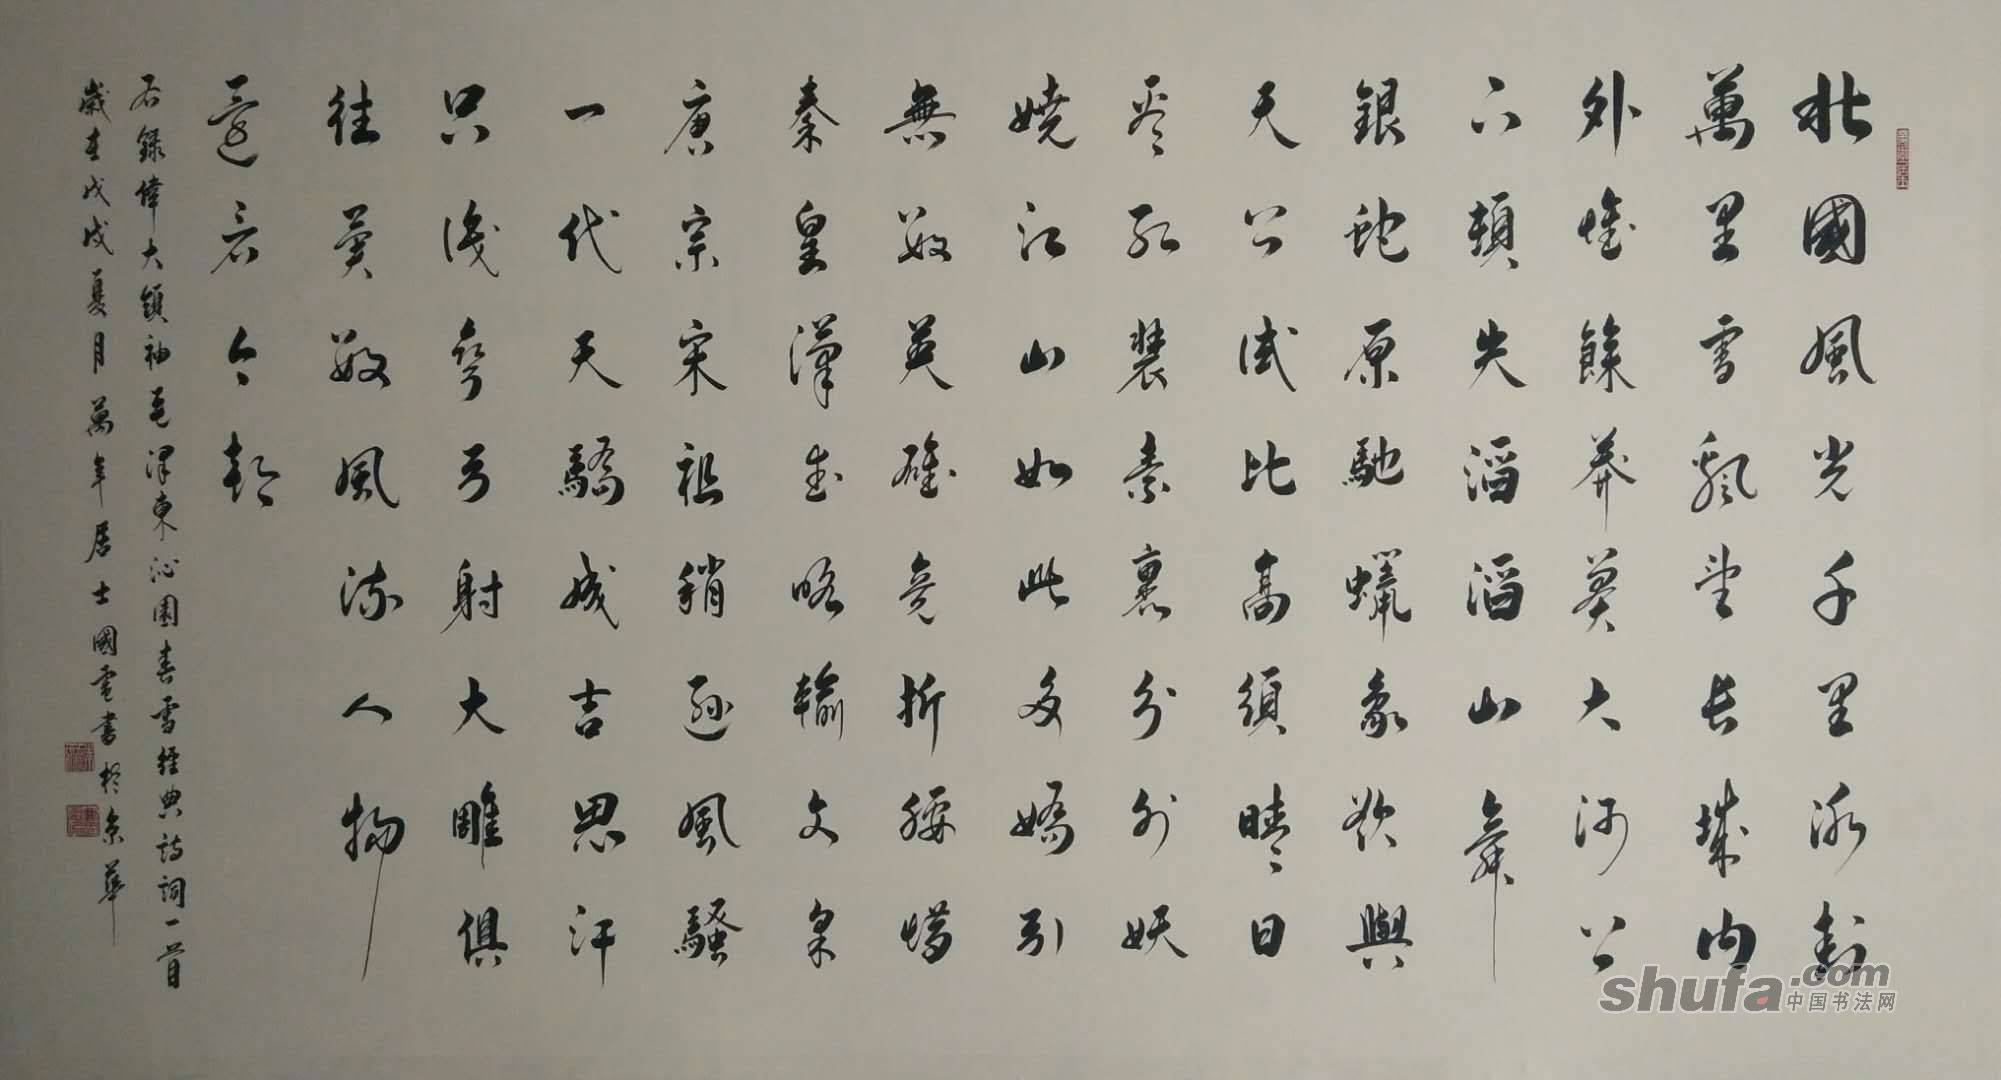 北國風光千里冰封
萬里雪飄望長城內
外惟餘莽莽大河上
下頓失滔滔山舞
銀蛇原馳蠟象欲與
天公試比高須晴日
看紅裝素裹分外妖
嬈江山如此多嬌引
無數英雄竟折腰惜
秦皇漢武略輸文采
唐宗宋祖稍遜風騷
一代天驕成吉思汗
只識彎弓射大雕俱
往矣數風流人物
還看今朝
右錄偉大領袖毛澤東沁園春雪經典詩詞一首
歲在戊戌夏月萬年居士國書於京華
shufa.com
中国书法网